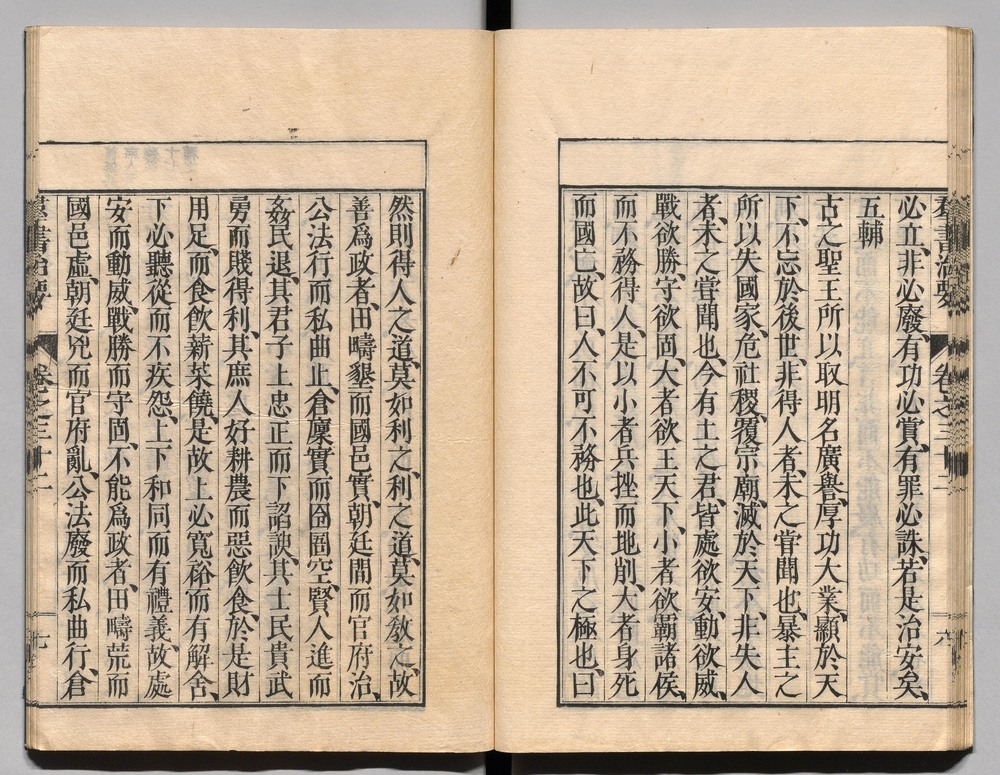 群書治要 卷之三十二 六
必立、非必廢、有功必賞、有罪必誅、若是治安矣、
五輔
古之聖王所以取明名廣譽、厚功大業、顯於天
下、不忘於後世、非得人者、未之甞聞也、暴主之
所以失國家、危社稷、覆宗廟、滅於天下、非失人
者、未之甞聞也、今有土之君、皆處欲安、動欲威、
戰欲勝、守欲固、大者欲王天下、小者欲霸諸侯、
而不務得人、是以小者兵挫而地削、大者身死
而國亡、故曰、人不可不務也、此天下之極也、曰
然則得人之道、莫如利之、利之道、莫如敎之、故
善爲政者、田疇墾而國邑實、朝廷閒而官府治、
公法行而私曲止、倉廩實而囹圄空、賢人進而
姦民退、其君子上忠正而下諂諛、其士民貴武
勇而賤得利、其庶人好耕農而惡飮食、於是財
用足、而食飮薪菜饒、是故上必寬裕而有解舍、
下必聽從而不疾怨、上下和同而有禮義、故處
安而動威、戰勝而守固、不能爲政者、田疇荒而
國邑虛、朝廷兇而官府亂、公法廢而私曲行、倉
群書治要 卷之三十二 七